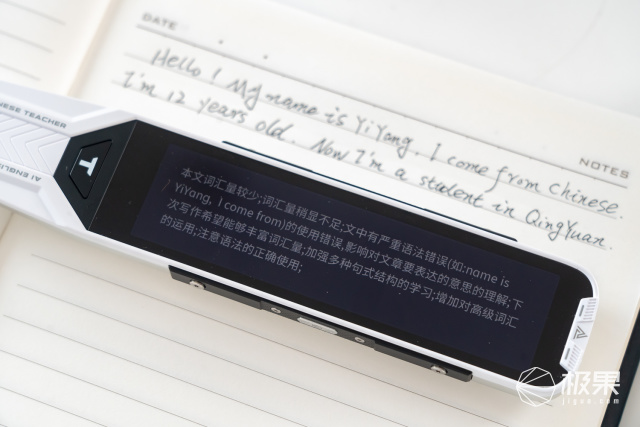 DATE
Hello! My name is YiYang. I come from Chinese.
I'm 12 years old. Now I'm a student in QingYuan.
NOTES
NESE TEACHER
AI ENGLI
T
本文词汇量较少;词汇量稍显不足;文中有严重语法错误(如:name is
/ YiYang, I come from)的使用错误,影响对文章要表达的意思的理解;下
次写作希望能够丰富词汇量;加强多种句式结构的学习;增加对高级词汇
的运用;注意语法的正确使用;
极果
jiguo.com